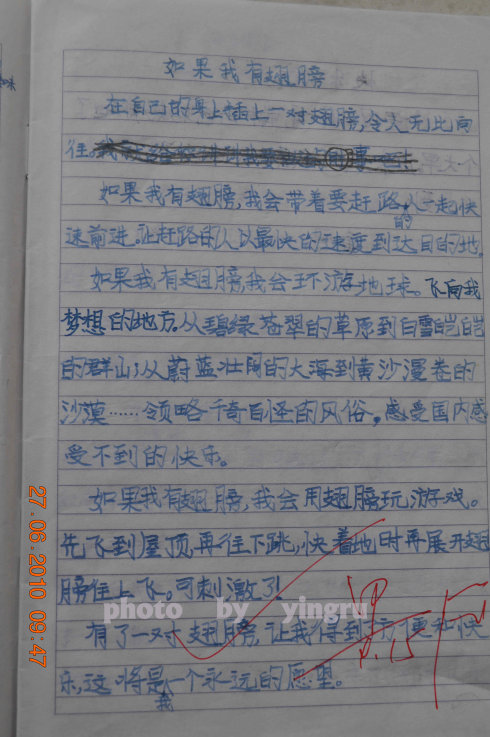 如果我有翅膀
在自己的身上插上一对翅膀,令人无比向
往。
如果我有翅膀,我会带着要赶路的人一起快
速前进。让赶路的人以最快的速度到达目的地。
如果我有翅膀,我会环游地球。飞向我
梦想的地方。从碧绿苍翠的草原到白雪皑皑
的群山;从蔚蓝壮阔的大海到黄沙漫卷的
沙漠……领略千奇百怪的风俗,感受国内感
受不到的快乐。
如果我有翅膀,我会用翅膀玩游戏。
先飞到屋顶,再往下跳,快着地时再展开翅
膀往上飞。可刺激了!
photo by yingru
有了一对翅膀,让我得到方便和快
乐,这将是我一个永远的愿望。
27.06.2010 09:47